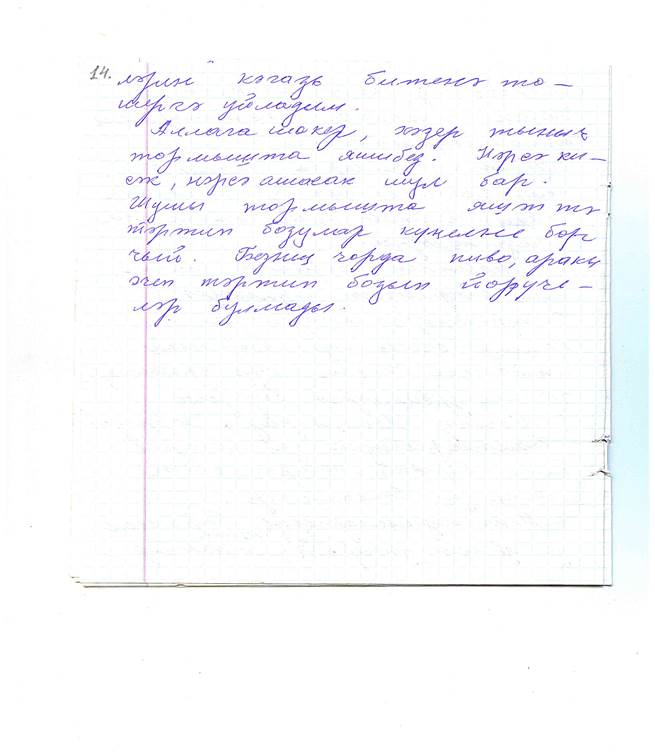 14. ләрен кәгазь битенә тө-
шергә уйладым.
Аллага шөкер, хәзер тыныч
тормышта яшибез. Нәрсә ки-
еж, нәрсә ашасак мул бар.
Шушы тормышта яшәттә
тәртип бозулар күңелне бор
чый. Безнең чорда пиво, аракы
эчеп тәртип бозып йөрүче-
ләр булмады.